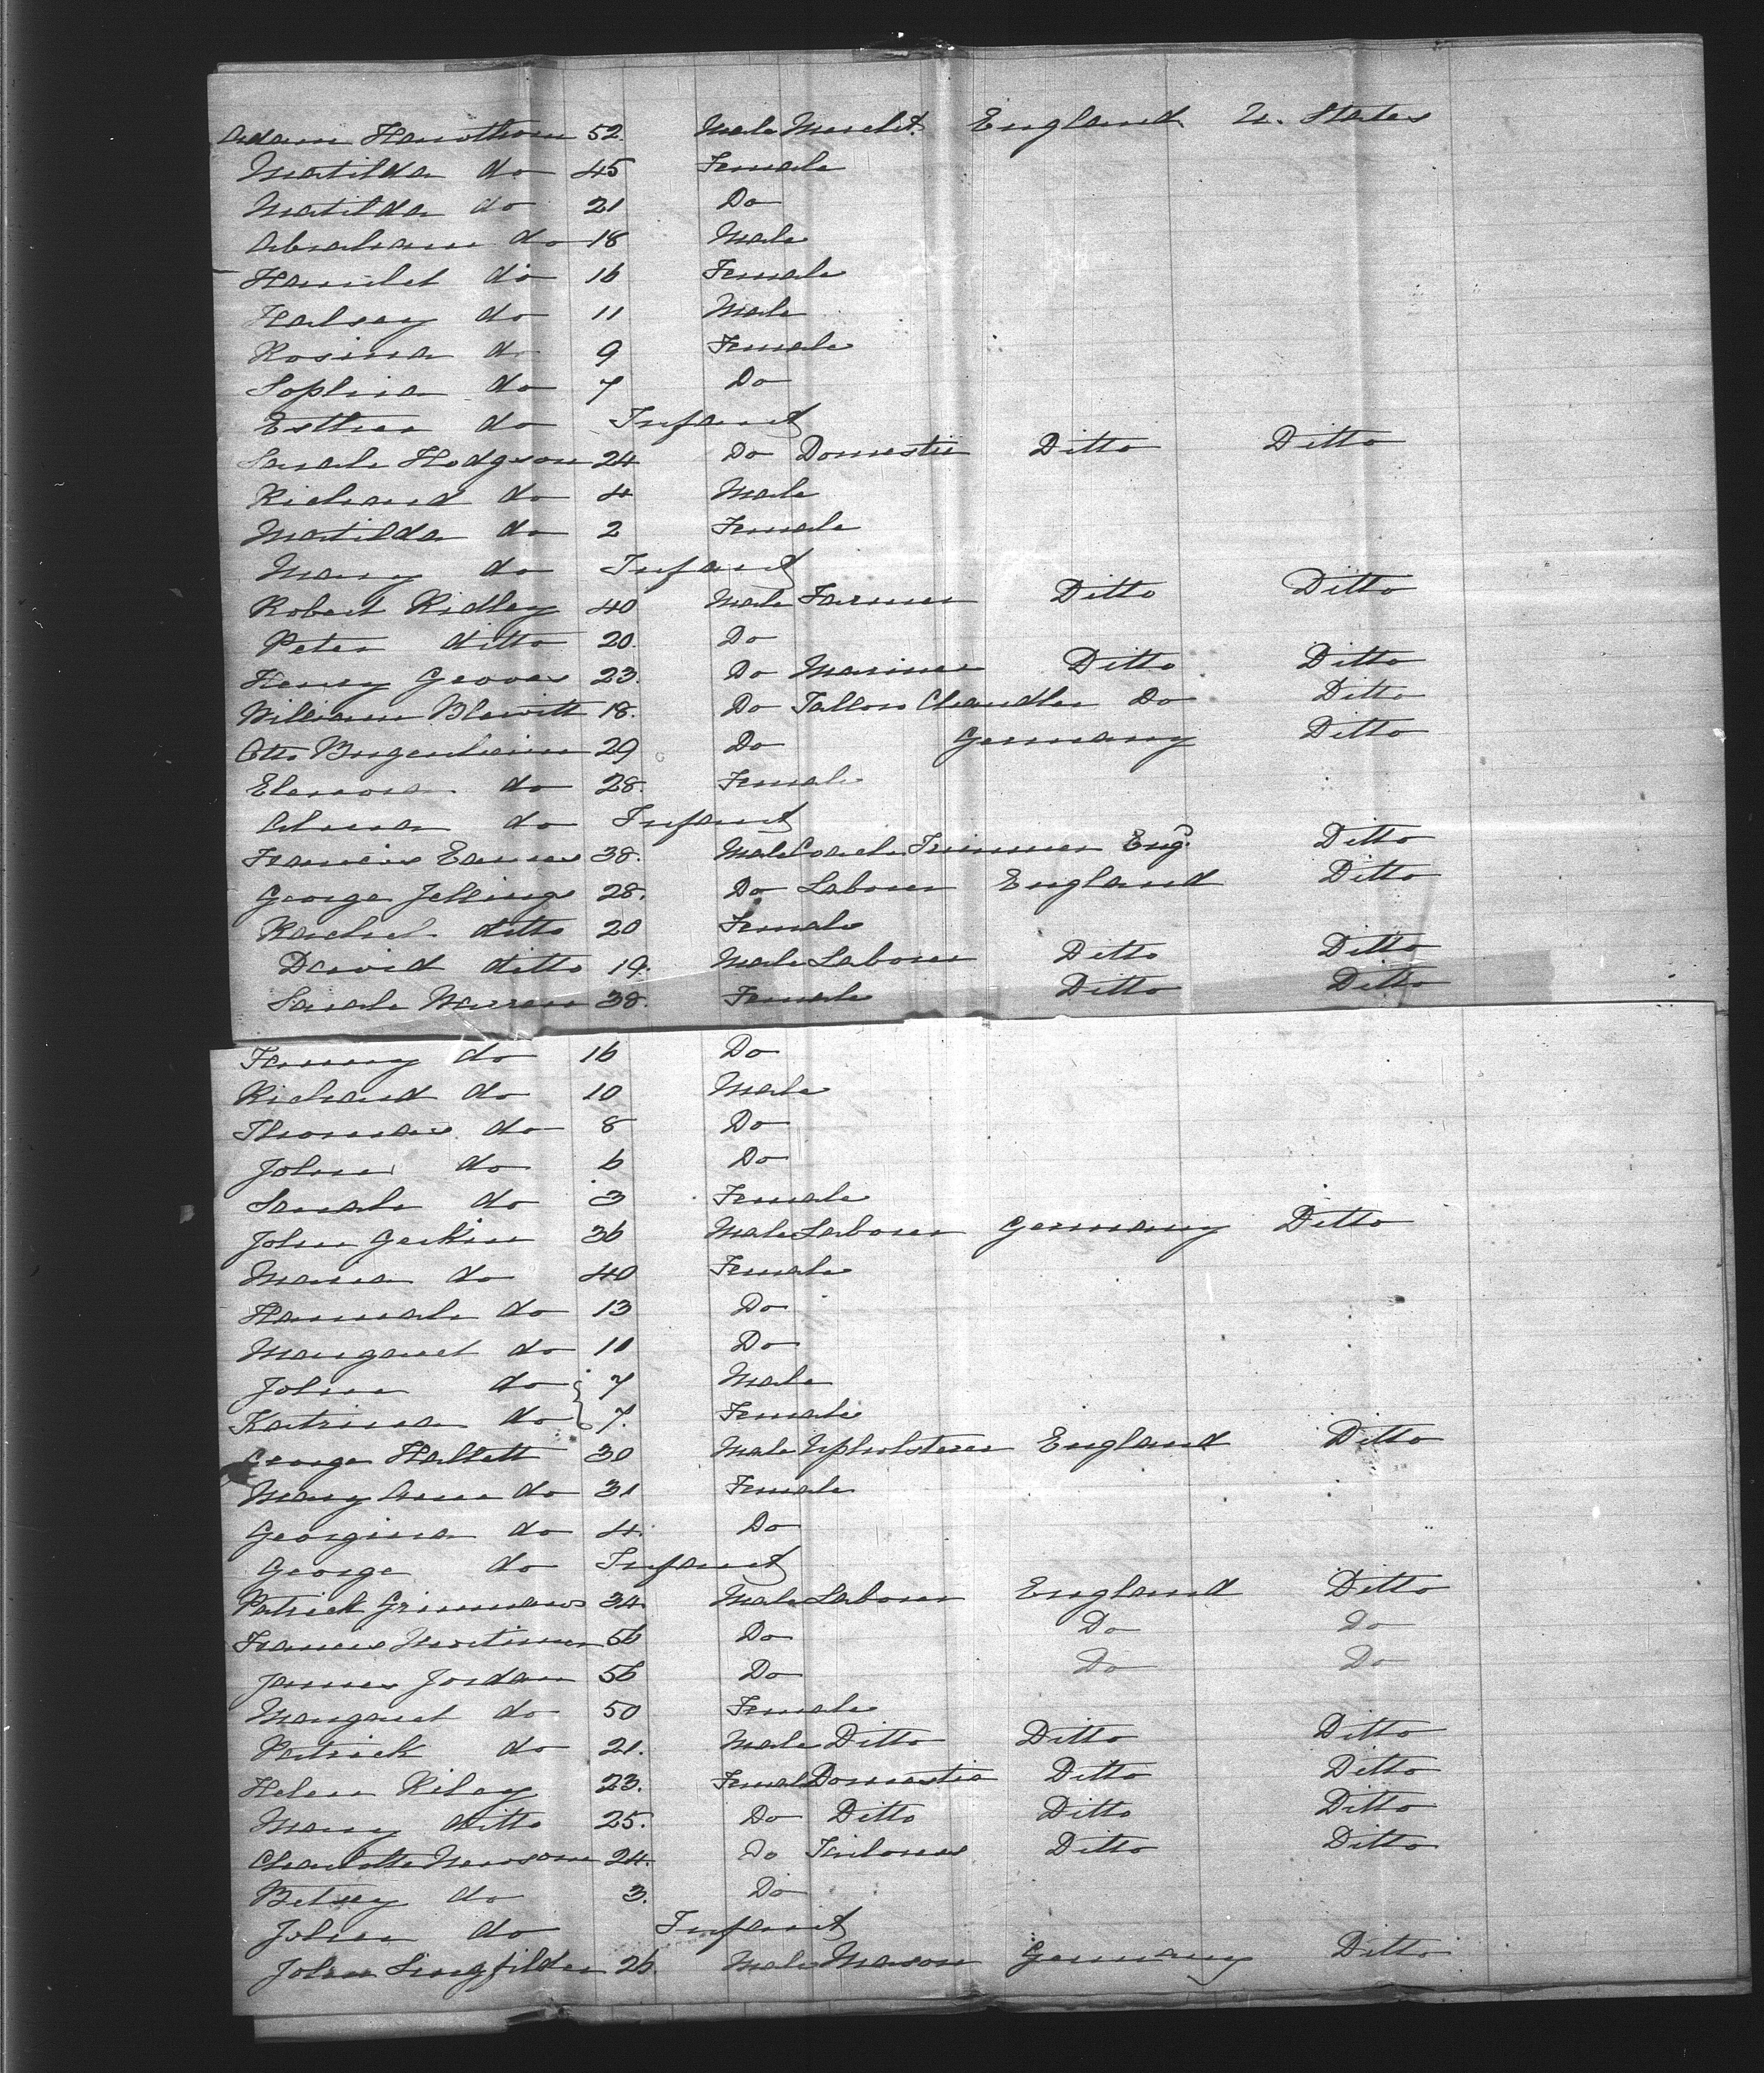 Adam Hawthorn 52. Male Mercht. England U. States
Matilda do 45 Female
Matilda do 21 Do
Abraham do 18 Male
Harriet do 16 Female
Halsey do 11 Male
Rosina do 9 Female
Sophia do 7 Do
Esther do Infant
Sarah Hodgson 24 Do Domestic Ditto Ditto
Richard do 4 Male
Matilda do 2 Female
Mary do Infant
Robert Ridley 40 Male Farmer Ditto Ditto
Peter ditto 20. Do
Henry Groves 23. Do Mariner Ditto Ditto
William Blewitt 18. Do Tallow Chandler Do Ditto
Otto 29 Do Germany Ditto
Elenora do 28. Female
Alma do Infant
Francis Eames 38. Male Coach Trimmer Engd. Ditto
George Jellings 28. Do Laborer England Ditto
Rachel ditto 20 Female
David ditto 19. Male Laborer Ditto Ditto
Sarah Warren 38. Female Ditto Ditto
Fanny do 16 Do
Richard do 10 Male
Thomas do 8 Do
John do 6 Do
Sarah do 3 Female
John Gerkin 36 Male Laborer Germany Ditto
Maria do 40 Female
Hannah do 13 Do
Margaret do 10 Do
John do 7 Male
Katrina do 7. Female
George Hallett 30 Male Upholsterer England Ditto
Mary Anne do 31 Female
Georgina do 4. Do
George do Infant
Patrick 34. Male Laborer England Ditto
Francis Mortimer 56 Do Do Do
James Jordan 56 Do Do Do
Margaret do 50 Female
Patrick do 21. Male Ditto Ditto Ditto
Helen Riley 23. Female Domestic Ditto Ditto
Mary ditto 25. Do Ditto Ditto Ditto
Charlotte Newsome 24. Do Tailoress Ditto Ditto
Betsey do 3. Do
John do Infant
John 26. Male Mason Germany Ditto